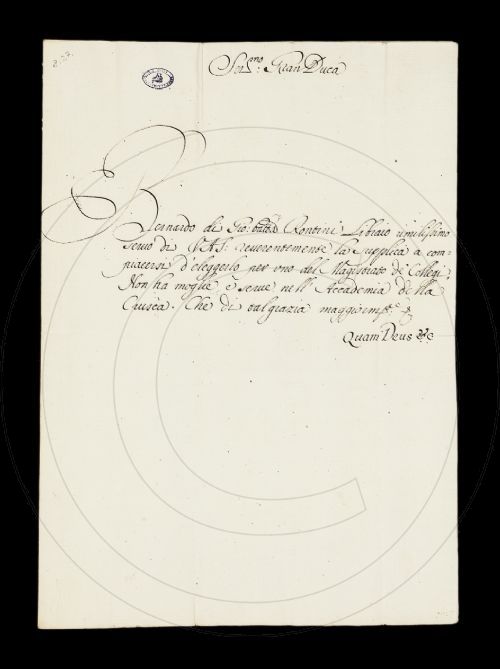 Ser.mo Gran Duca
Bernardo di Gio: Batta Rontini Libraio umilissimo
servo di V.A.S. reverentemente la supplica a com-
piacersi d'eleggerlo per uno del Magistrato de Collegi.
Non ha moglie e serve nell'Accademia della
Crusca. Che di tal grazia
Quam Deus &c